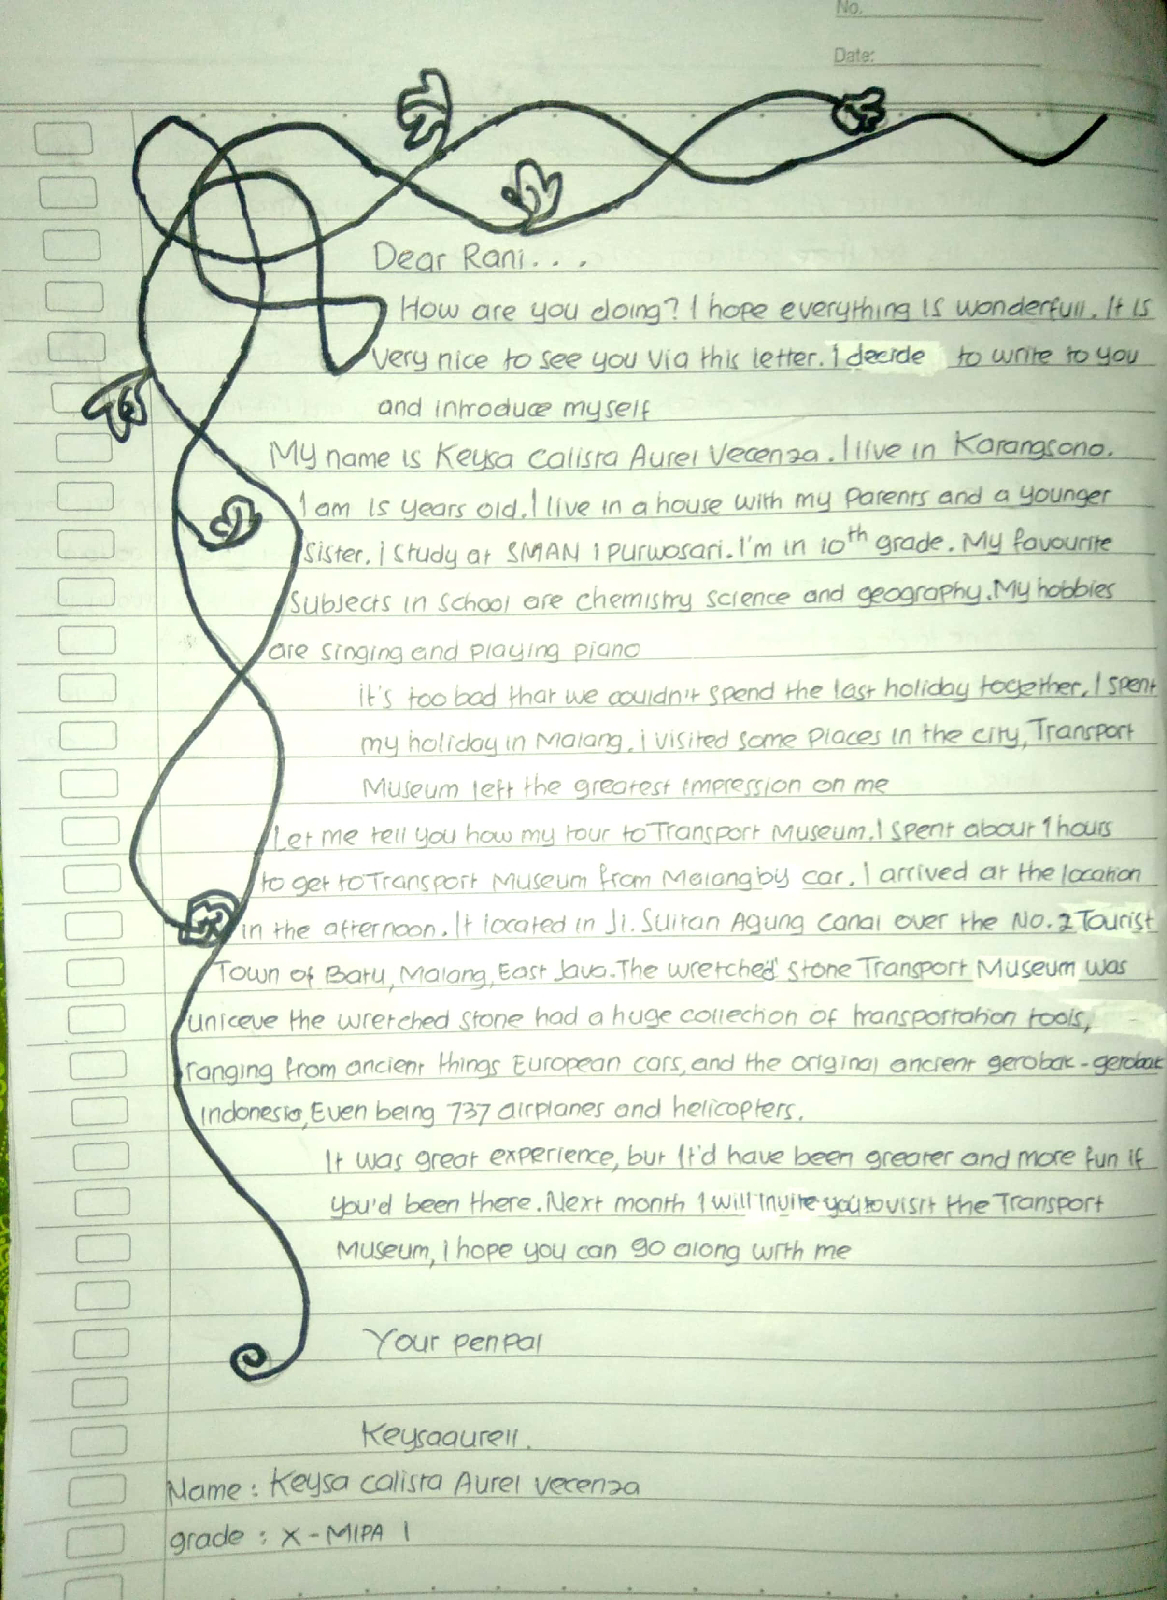 No.
Date:
Dear Rani. . .
How are you doing? I hope everything is wonderfull. It is
very nice to see you via this letter. I decide to write to you
and introduce myself
My name is Keysa Calista Aurel Vecenza. I live in Karangsono.
I am 15 years old. I live in a house with my parents and a younger
sister. i study at SMAN 1 Purwosari. I'm in 10th grade. My favourite
Subjects in school are chemistry science and geography. My hobbies
are singing and playing piano
it's too bad that we couldn't spend the last holiday together. I spent
my holiday in Malang. i visited some places in the city, Transport
Museum left the greatest impression on me
Let me tell you how my tour to Transport Museum. I spent about 1 hours
to get to Transport Museum from Malang by car. I arrived at the location
in the afternoon. It located in Jl. Sultan Agung canal over the No. 2 Tourist
Town of Batu, Malang, East Java. The wretched stone Transport Museum was
uniceve the wretched stone had a huge collection of transportation tools,
ranging from ancient things European cars, and the original ancient gerobak-gerobak
Indonesia, Even being 737 airplanes and helicopters.
It was great experience, but It'd have been greater and more fun if
you'd been there. Next month I will invite you to visit the Transport
Museum, i hope you can go along with me
Your penpal
Keysaaurell.
Name : Keysa calista Aurel vecenza
grade : X - MIPA 1